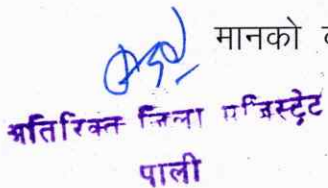 मानको
अतिरिक्त जिला मजिस्ट्रेट
पाली